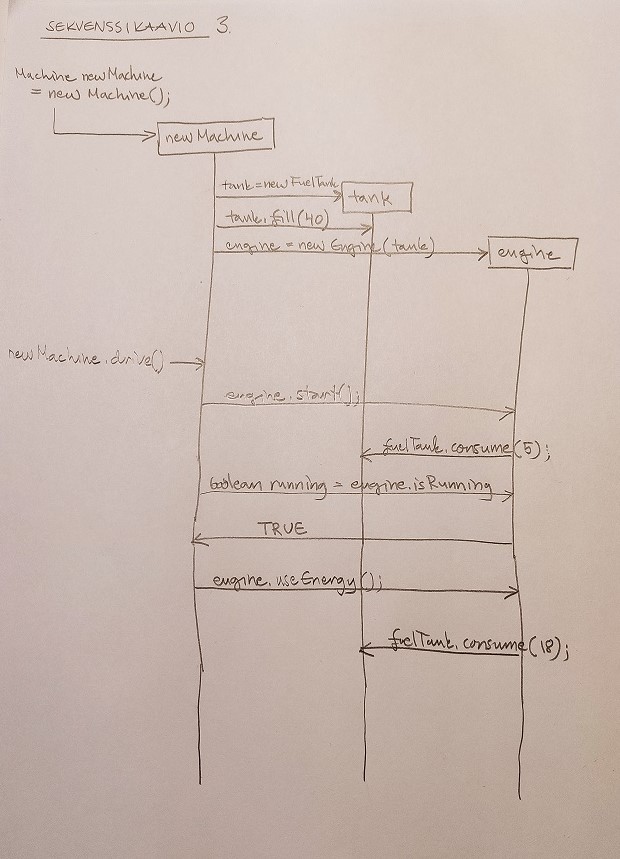 SEKVENSSIKAAVIO 3.
Machine newMachine
= new Machine();
newMachine
tank=newFuelTank
tank
tank.fill(40)
engine = newEngine(tank)
engine
newMachine.drive()
engine.start();
fuelTank.consume(5);
boolean running = engine.isRunning
TRUE
engine.useEnergy();
fuelTank.consume(18);